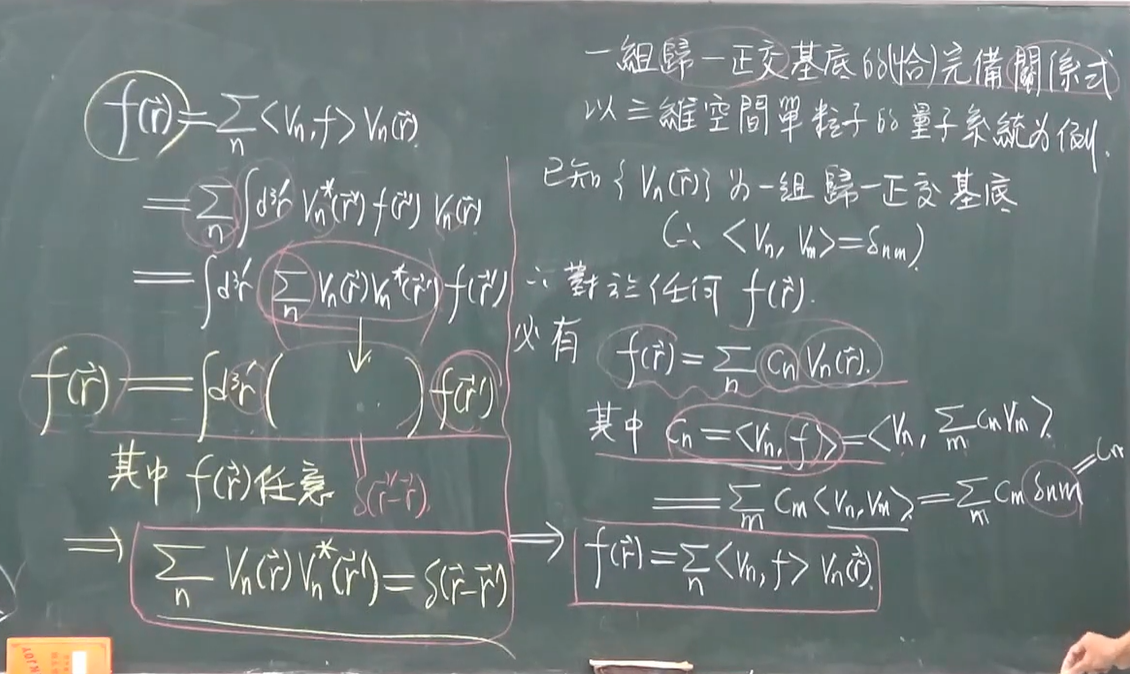 一組歸一正交基底的(恰)完備關係式
以三維空間單粒子的量子系統為例.
已知{Vn(r⃗)}為一組歸一正交基底
(∴ <Vn, Vm>=δnm)
∴對於任何 f(r⃗).
必有 f(r⃗) = Σn Cn Vn(r⃗).
其中 Cn = <Vn, f> = <Vn, Σm CmVm>
= Σm Cm <Vn, Vm> = Σm Cm δnm = Cn
f(r⃗) = Σn <Vn, f> Vn(r⃗).
f(r⃗) = Σn <Vn, f> Vn(r⃗).
= Σn ∫d³r' Vn*(r⃗') f(r⃗') Vn(r⃗)
= ∫d³r' Σn Vn(r⃗)Vn*(r⃗') f(r⃗')
f(r⃗) = ∫d³r' ( ) f(r⃗')
其中 f(r⃗)任意 δ(r⃗'-r⃗).
⇒ Σn Vn(r⃗) Vn*(r⃗') = δ(r⃗-r⃗')